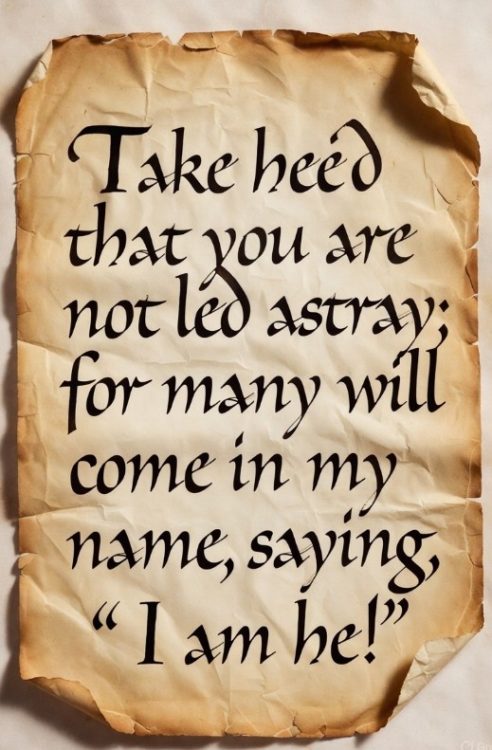 Take heed
that you are
not led astray;
for many will
come in my
name, saying,
“ I am he!”